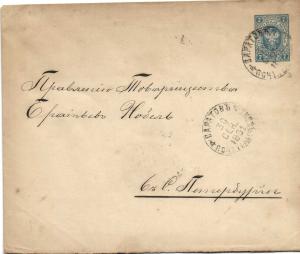 Правленію Товарищества
Братьевъ Нобель
САРАТОВЪ
1891
Въ С. Петербургѣ